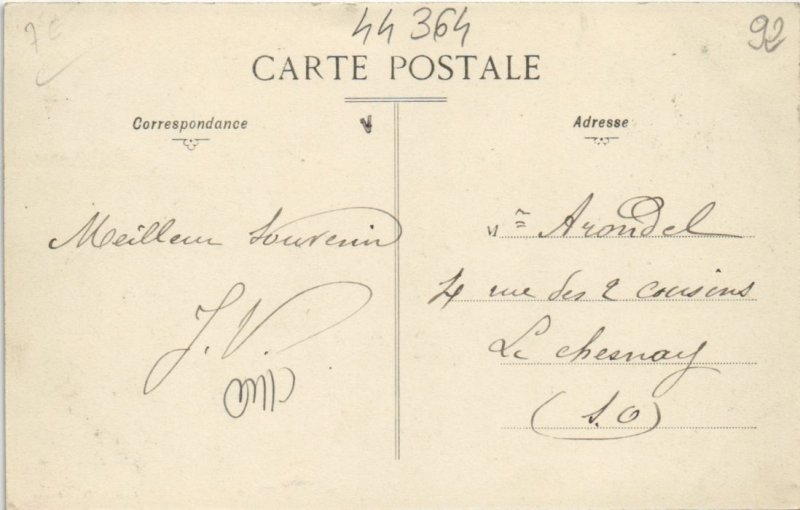 7€
44 364
92
CARTE POSTALE
Correspondance
Adresse
Meilleur Souvenir
J. V.
Arondel
4 rue des 2 cousins
Le chesnay
(S.O)